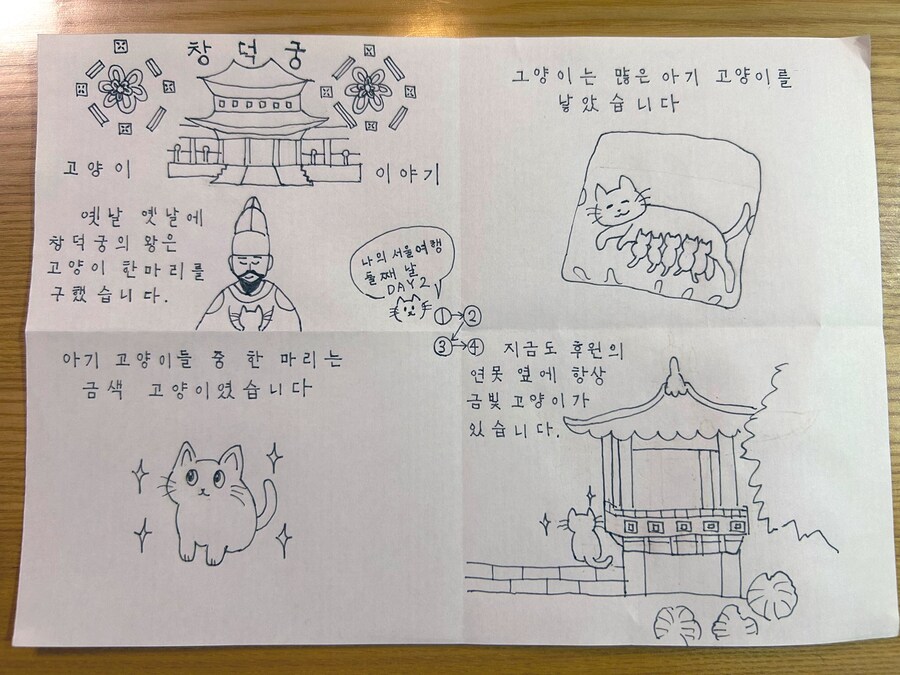 창덕궁
고양이 이야기
옛날 옛날에
창덕궁의 왕은
고양이 한마리를
구했습니다.
나의 서울여행
둘째 날
DAY 2
① → ②
③ → ④
그양이는 많은 아기 고양이를
낳았습니다
아기 고양이들 중 한 마리는
금색 고양이였습니다
지금도 후원의
연못 옆에 항상
금빛 고양이가
있습니다.